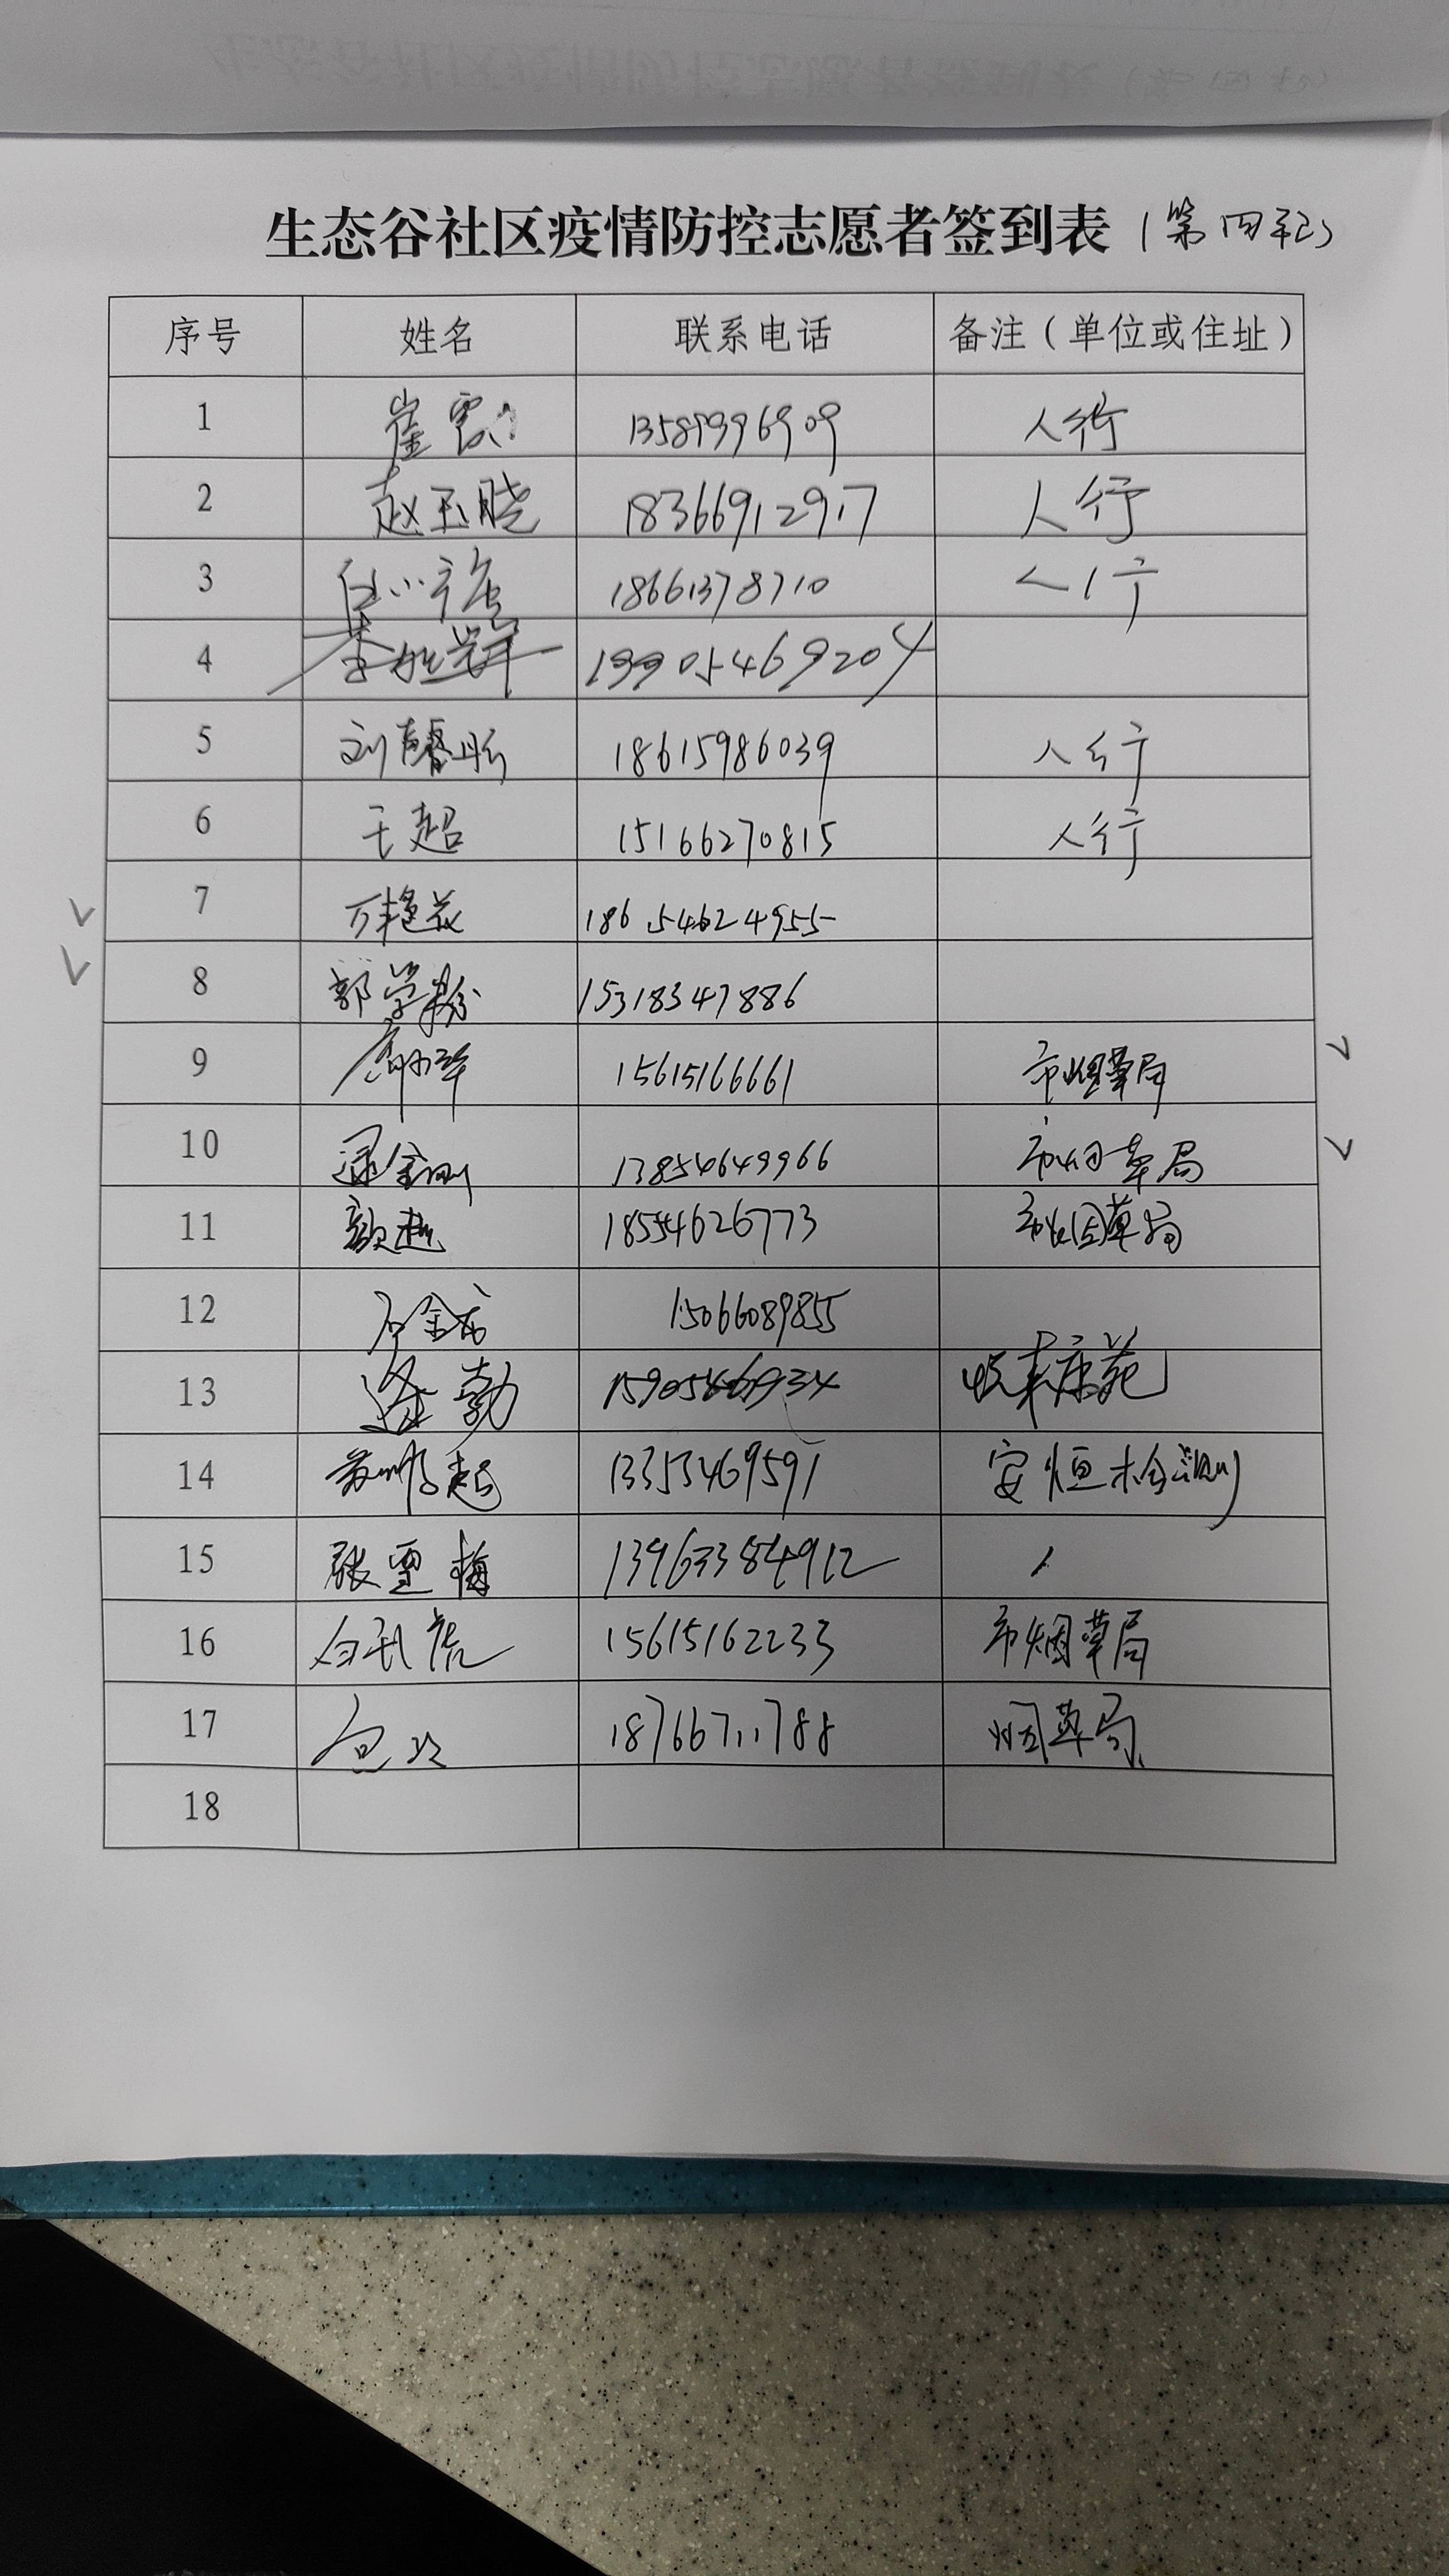 生态谷社区疫情防控志愿者签到表（第四轮）
序号 姓名 联系电话 备注（单位或住址）
1 崔 13589996909 人行
2 赵玉晓 18366912917 人行
3 18661378710 人行
4 19905469204
5 刘馨彤 18615986039 人行
6 王超 15166270815 人行
7 万艳花 18654624955
8 郭学粉 15318347886
9 15615166661 市烟草局
10 逯金刚 13854649966 市烟草局
11 颜越 18554626773 市烟草局
12 石金龙 15066089855
13 逄勃 15905466934 康苑
14 苏鹏起 13353469591 安恒检测
15 张雪梅 13963384912 /
16 15615162233 市烟草局
17 18766711788 烟草局
18